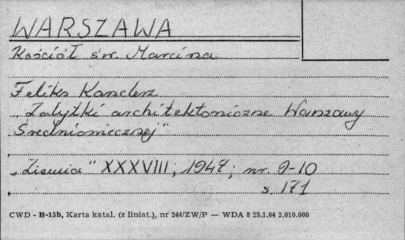 WARSZAWA
Kościół św. Marcina
Feliks Kanclerz
„Zabytki architektoniczne Warszawy
Średniowiecznej"
„Ziemia" XXXVIII, 1947, nr. 9-10
s. 171
CWD - B-15b, Karta katal. (z liniat.), nr 244/ZW/P — WDA 8 25.1.64 2.010.000